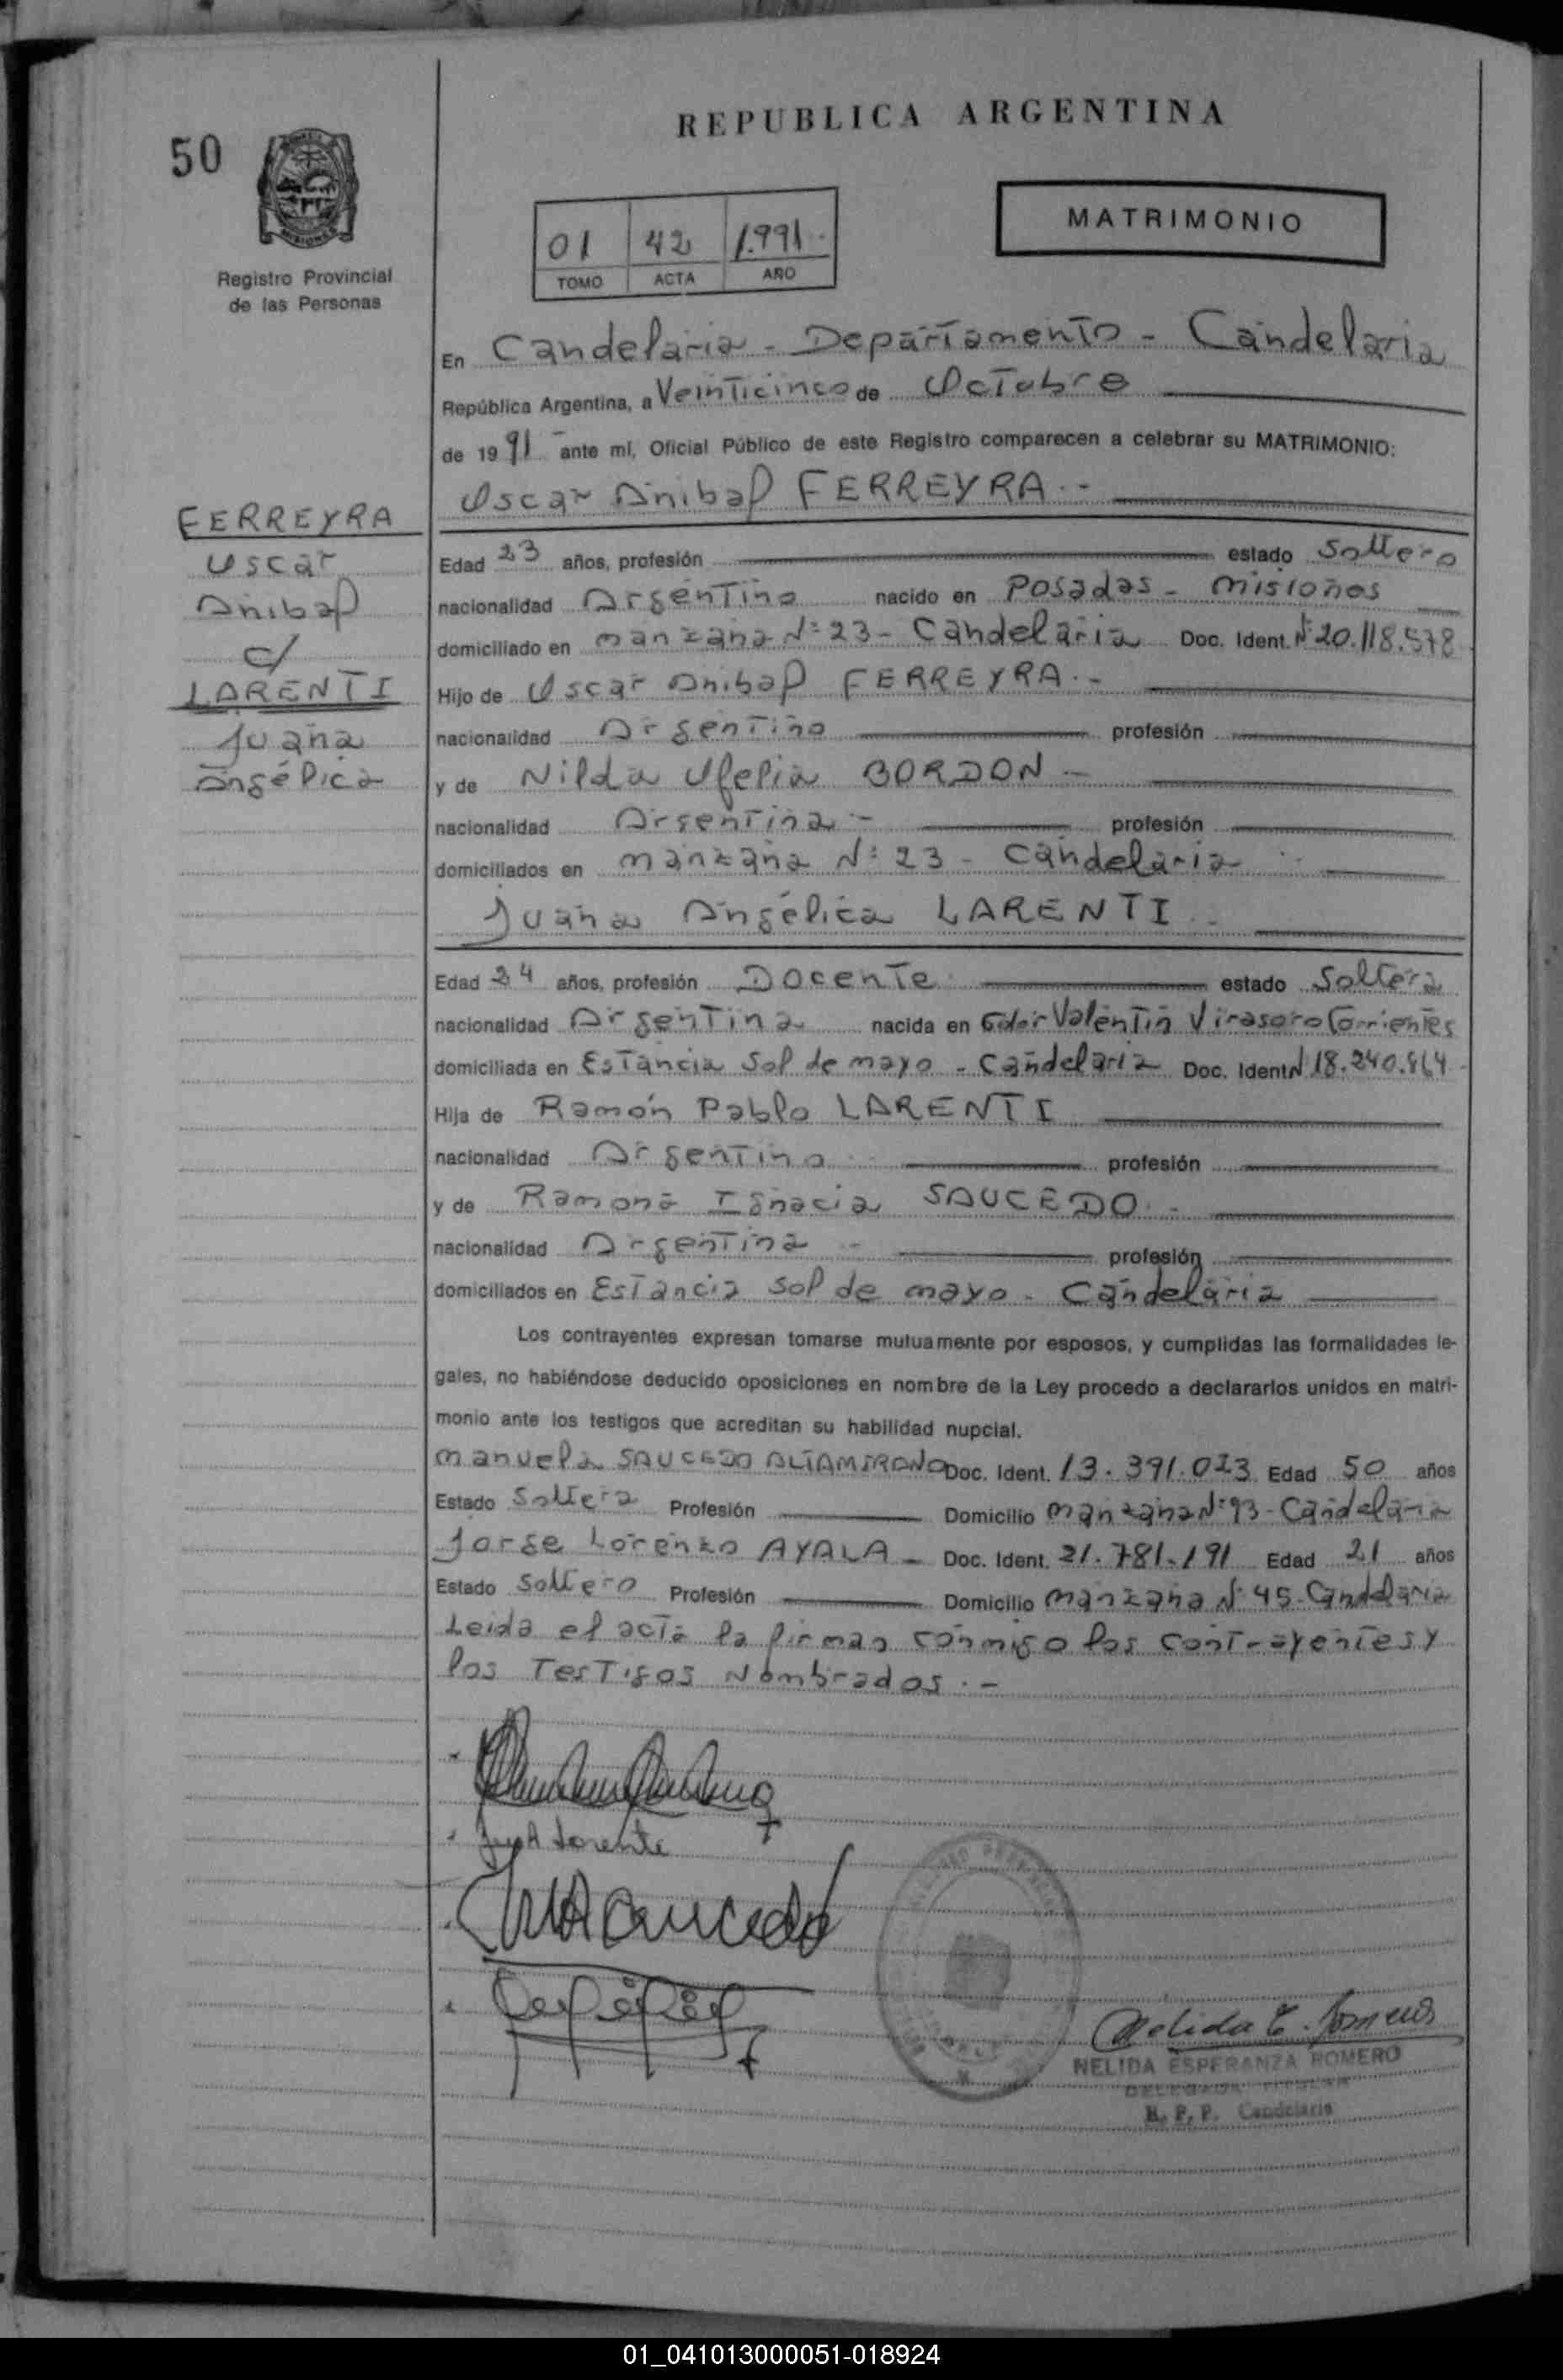 REPUBLICA ARGENTINA
50
MATRIMONIO
01 42 1.991.
TOMO ACTA AÑO
Registro Provincial
de las Personas
En Candelaria - Departamento - Candelaria
República Argentina, a Veinticinco de Octubre
de 1991 ante mí, Oficial Público de este Registro comparecen a celebrar su MATRIMONIO:
Oscar Anibal FERREYRA.-
FERREYRA
Oscar
Anibal
c/
LARENTI
Juana
Angélica
Edad 23 años, profesión estado Soltero
nacionalidad Argentino nacido en Posadas - Misiones
domiciliado en manzana Nº 23 - Candelaria Doc. Ident. Nº 20.118.578
Hijo de Oscar Anibal FERREYRA.-
nacionalidad Argentino profesión
y de Nilda Ofelia BORDON -
nacionalidad Argentina - profesión
domiciliados en manzana Nº 23 - Candelaria
Juana Angélica LARENTI
Edad 24 años, profesión Docente estado Soltera
nacionalidad Argentina nacida en Valentín Virasoro Corrientes
domiciliada en Estancia Sol de mayo - Candelaria Doc. Ident
Hija de Ramón Pablo LARENTI
nacionalidad Argentino profesión
y de Ramona Ignacia SAUCEDO.-
nacionalidad Argentina - profesión
domiciliados en Estancia Sol de mayo - Candelaria
Los contrayentes expresan tomarse mutuamente por esposos, y cumplidas las formalidades le-
gales, no habiéndose deducido oposiciones en nombre de la Ley procedo a declararlos unidos en matri-
monio ante los testigos que acreditan su habilidad nupcial.
Manuela SAUCEDO ALTAMIRANO Doc. Ident. 13.391.023 Edad 50 años
Estado Soltera Profesión Domicilio Manzana Nº 93 - Candelaria
Jorge Lorenzo AYALA - Doc. Ident. 21.781.191 Edad 21 años
Estado Soltero Profesión Domicilio Manzana Nº 45 - Candelaria
Leida el acta la firman conmigo los contrayentes y
los Testigos Nombrados.-
Nelida E. Romero
NELIDA ESPERANZA ROMERO
DELEGADA TITULAR
R. P. P. Candelaria
01_041013000051-018924